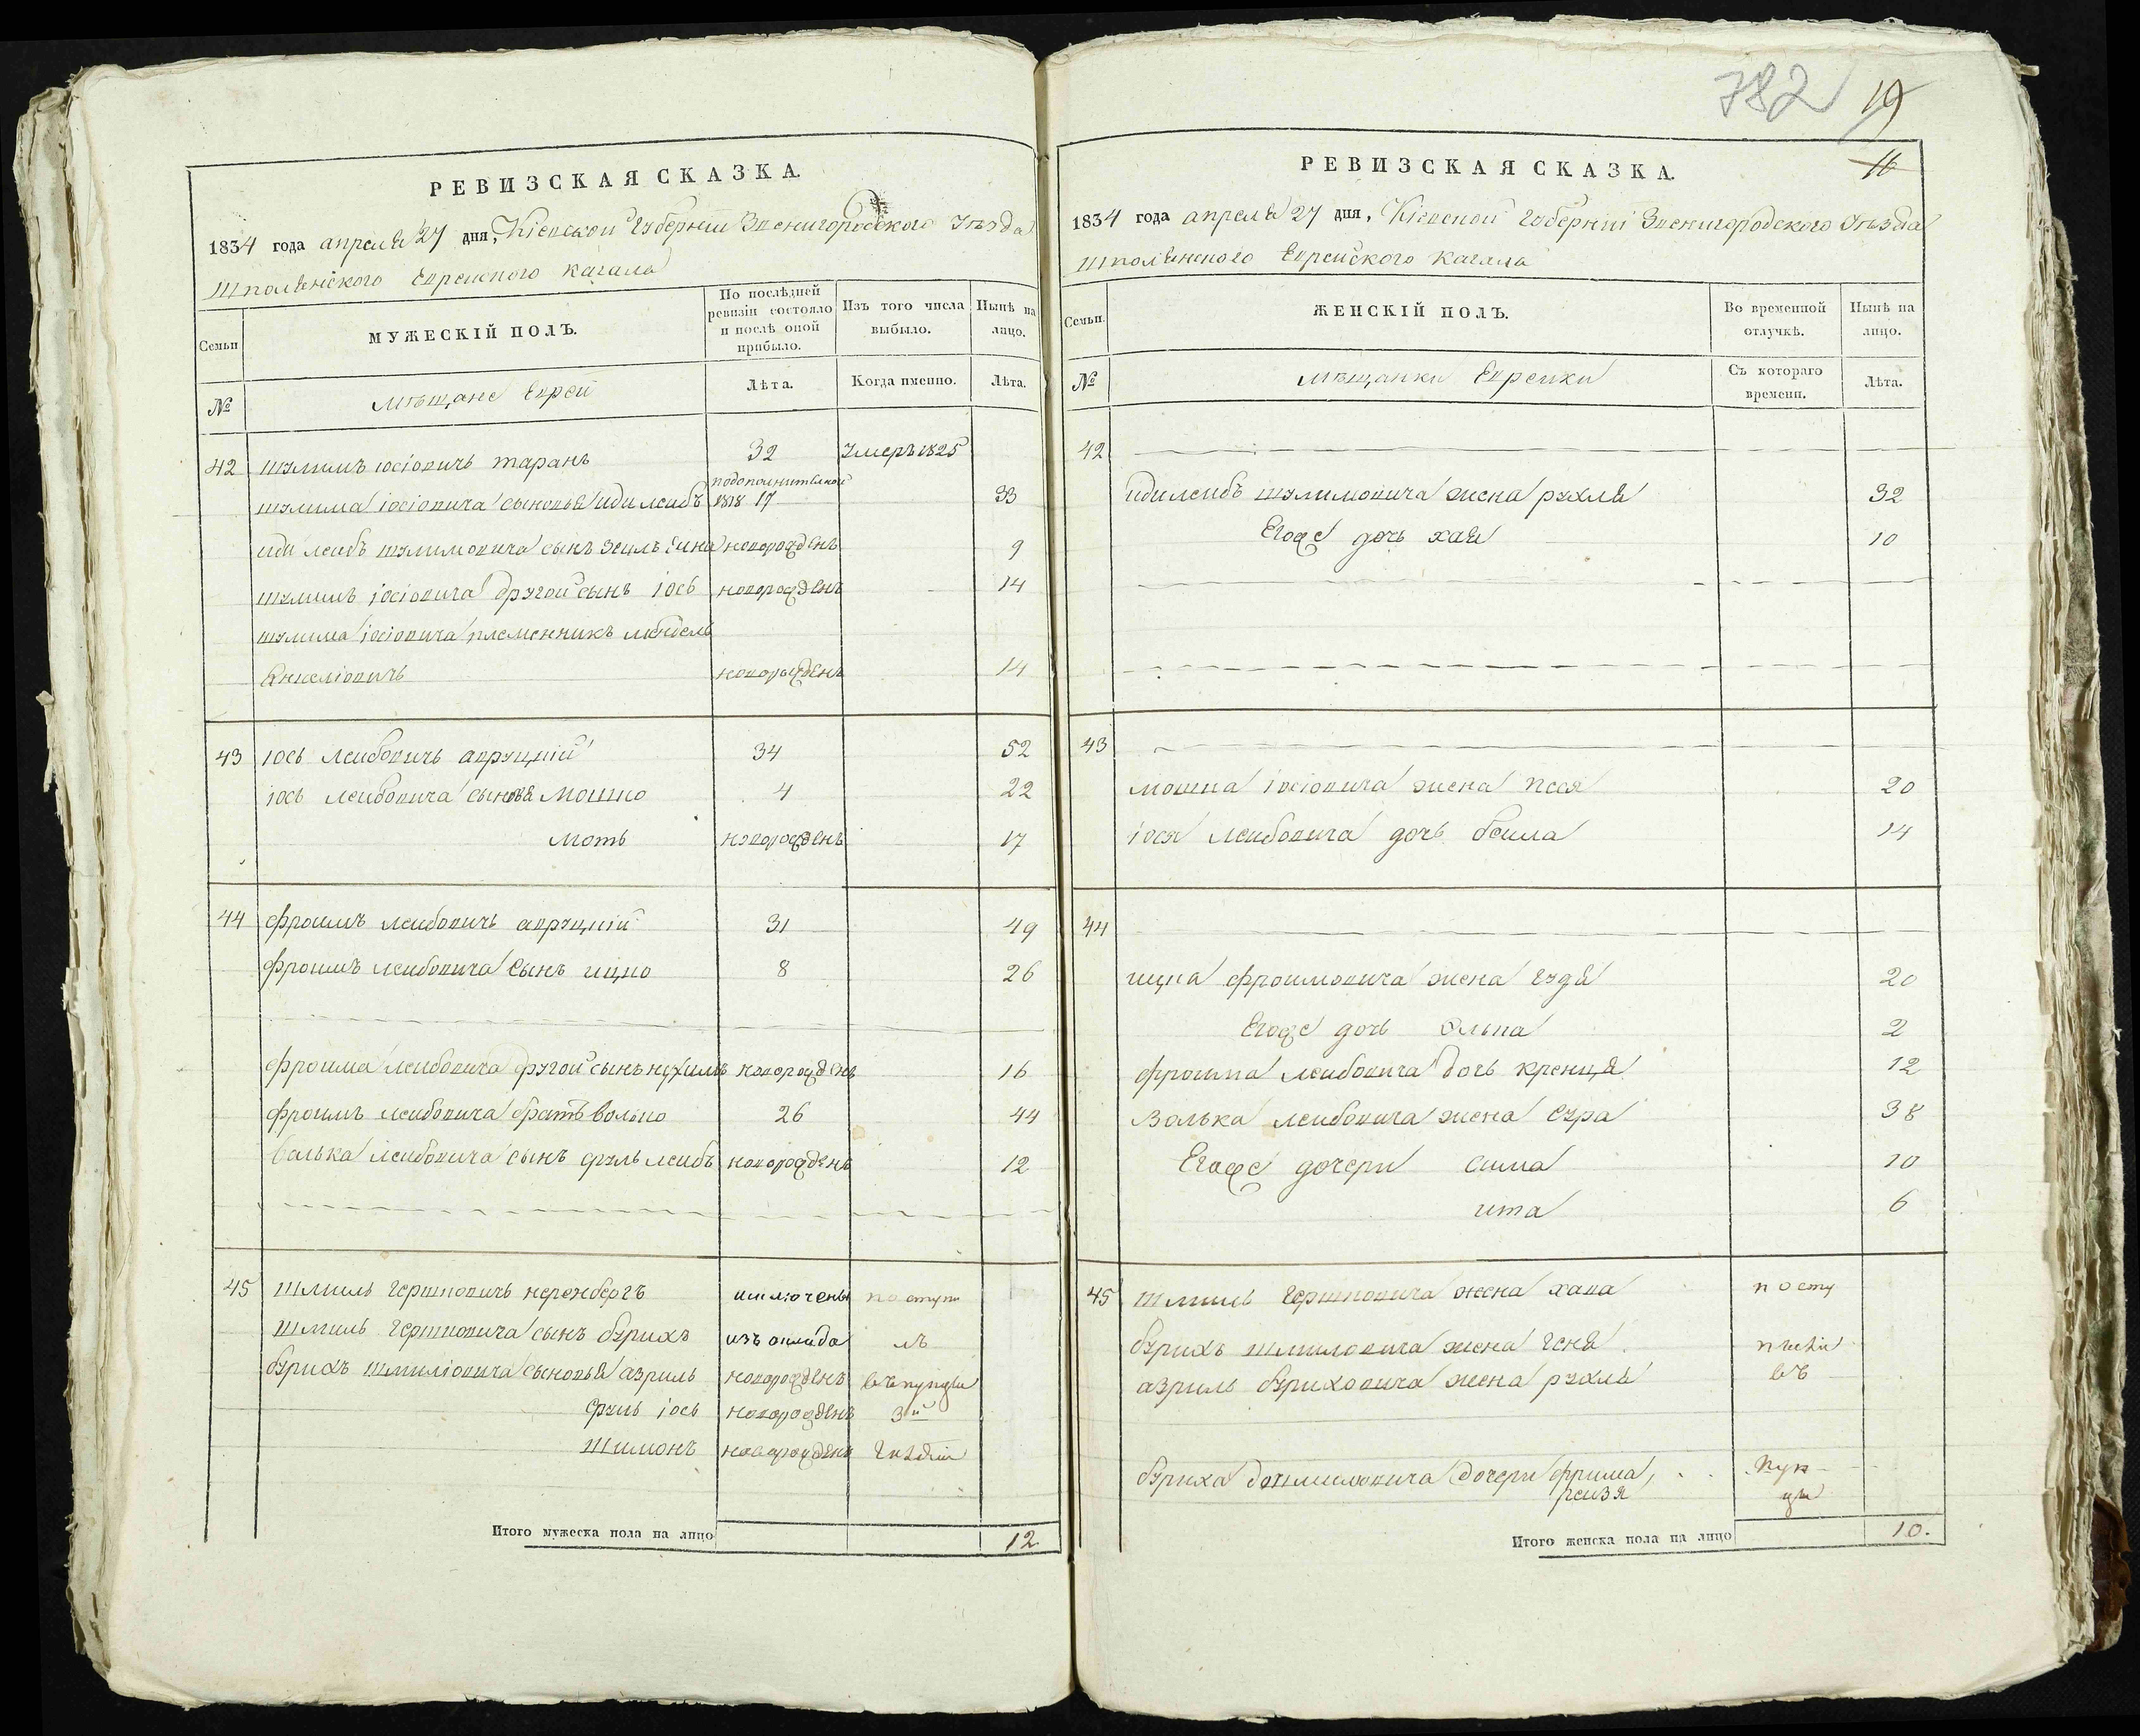 782 19
РЕВИЗСКАЯ СКАЗКА.
1834 года апреля 27 дня, Кіевской Губерніи Звенигородского Уезда
Шполянского Еврейского Кагала
Семьи
МУЖЕСКІЙ ПОЛЪ.
По послѣдней ревизіи состояло и послѣ оной прибыло.
Изъ того числа выбыло.
Нынѣ на лицо.
№
мѣщане Евреи
Лѣта.
Когда именно.
Лѣта.
42 шулимъ іосіовичь таранъ 32 Умеръ 1825
шулима іосіовича сыновья иди леибъ 1818 17 33
иди леибъ шулимовича сынъ новорожденъ 9
шулимъ іосіовича другой сынъ іось новорожденъ 14
шулима іосіовича племенникъ мендель
Янкеліовичь новорожденъ 14
43 іось леибовичь авруцкій 34 52
іось леибовича сыновья Мошко 4 22
моть новорожденъ 17
44 фроимъ леибовичь авруцкій 31 49
фроимъ леибовича сынъ ицко 8 26
фроима леибовича другой сынъ нухимъ новорожденъ 16
фроимъ леибовича братъ волько 26 44
волька леибовича сынъ сруль леибъ новорожденъ 12
45 шмиль гершковичь неренбергъ исключены поступи
шмиль гершковича сынъ бурихъ изъ оклада лъ
бурихъ шмиліовича сыновья азриль новорожденъ въ купцы
сруль іось новорожденъ 3й
шимонъ новорожденъ гилдіи
Итого мужеска пола на лицо 12
РЕВИЗСКАЯ СКАЗКА.
16
1834 года апреля 27 дня, Кіевской Губерніи Звенигородского Уезда
шполянского Еврейского Кагала
Семьи.
ЖЕНСКІЙ ПОЛЪ.
Во временной отлучкѣ.
Нынѣ на лицо.
№
мѣщанки Еврейки
Съ котораго времени.
Лѣта.
42
иди леибъ шулимовича жена рухля 32
Егоже дочь хая 10
43
мошка іосіовича жена песя 20
іося леибовича дочь бейла 14
44
ицка фроимовича жена гудя 20
Егоже дочь элька 2
фроима леибовича дочь кренця 12
Волька леибовича жена сура 38
Егоже дочери сима 10
ита 6
45 шмиль гершковича жена хава посту
бурихъ шмиловича жена геня
азриль буриховича жена рухля въ
буриха шмиловича дочери фрима, куп
рейзя цы
Итого женска пола на лицо 10.